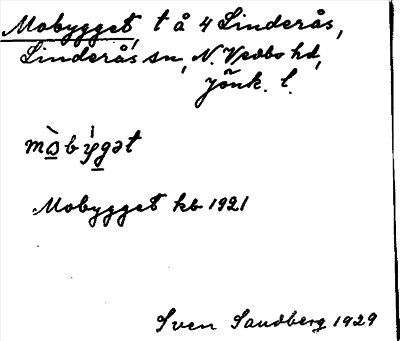 Mobygget, t å 4 Linderås,
Linderås sn, N. Vedbo hd,
Jönk. l.
Mobygget kb 1921
Sven Sandberg 1929